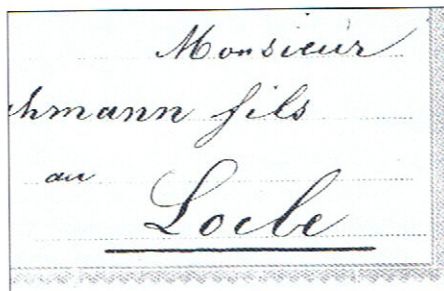 Monsieur
hmann fils
au
Locle